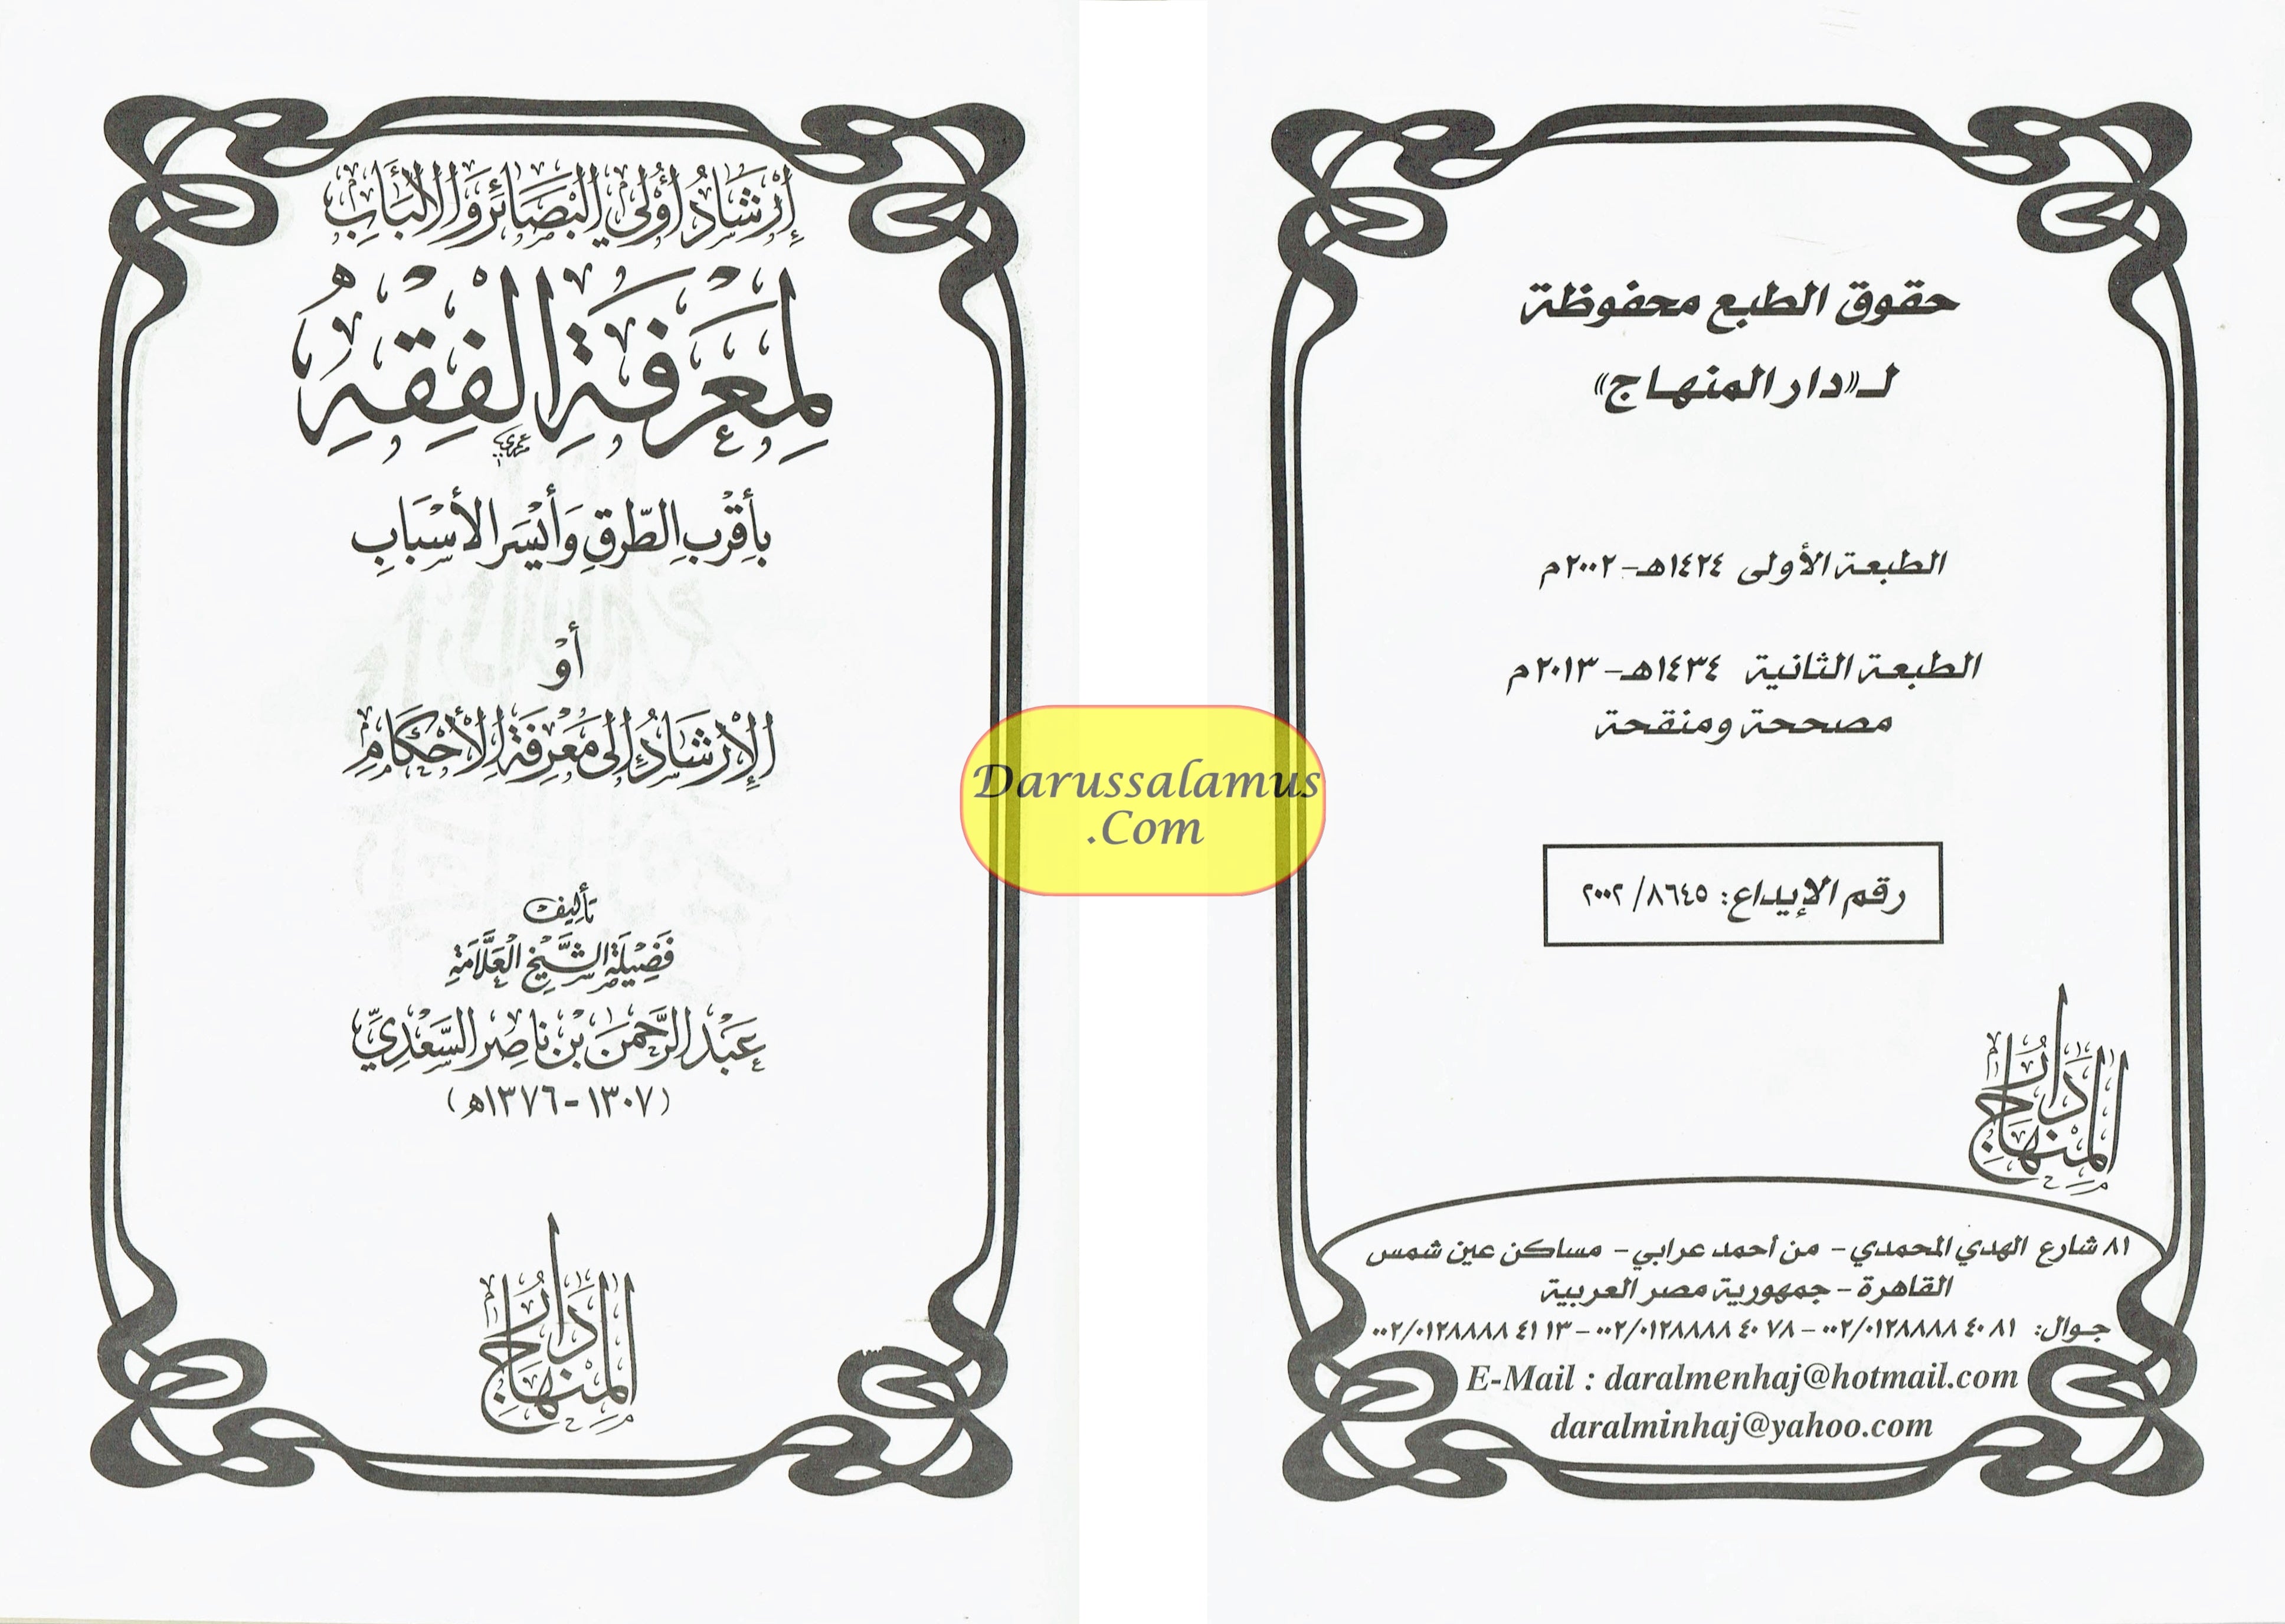 إِرْشَادُ أُولِي الْبَصَائِرِ وَالْأَلْبَابِ
لِمَعْرِفَةِ الْفِقْهِ
بِأَقْرَبِ الطُّرُقِ وَأَيْسَرِ الأَسْبَابِ
أَوْ
الْإِرْشَادُ إِلَى مَعْرِفَةِ الْأَحْكَامِ
تأليف
فَضِيلَةِ الشَّيْخِ الْعَلَّامَةِ
عَبْدِ الرَّحْمَنِ بْنِ نَاصِرِ السَّعْدِيِّ
(١٣٠٧ - ١٣٧٦هـ)
دَارُ
الْمِنْهَاجِ
Darussalamus
.Com
حقوق الطبع محفوظة
لـ«دار المنهاج»
الطبعة الأولى ١٤٢٤هـ - ٢٠٠٢م
الطبعة الثانية ١٤٣٤هـ - ٢٠١٣م
مصححة ومنقحة
رقم الإيداع: ٨٦٤٥/ ٢٠٠٢
دَارُ
الْمِنْهَاجِ
٨١ شارع الهدي المحمدي - من أحمد عرابي - مساكن عين شمس
القاهرة - جمهورية مصر العربية
جوال: ٨١ ٤٠ ٠٠٢/٠١٢٨٨٨٨ - ٧٨ ٤٠ ٠٠٢/٠١٢٨٨٨٨ - ١٣ ٤١ ٠٠٢/٠١٢٨٨٨٨
E-Mail : daralmenhaj@hotmail.com
daralminhaj@yahoo.com